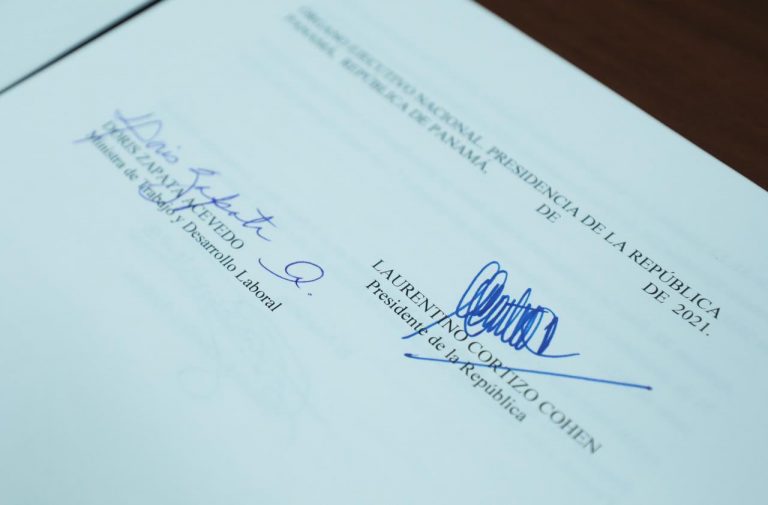 ÓRGANO EJECUTIVO NACIONAL. PRESIDENCIA DE LA REPÚBLICA
PANAMÁ, REPÚBLICA DE PANAMÁ, DE DE 2021.
LAURENTINO CORTIZO COHEN
Presidente de la República
Doris Zapata A.
DORIS ZAPATA ACEVEDO
Ministra de Trabajo y Desarrollo Laboral